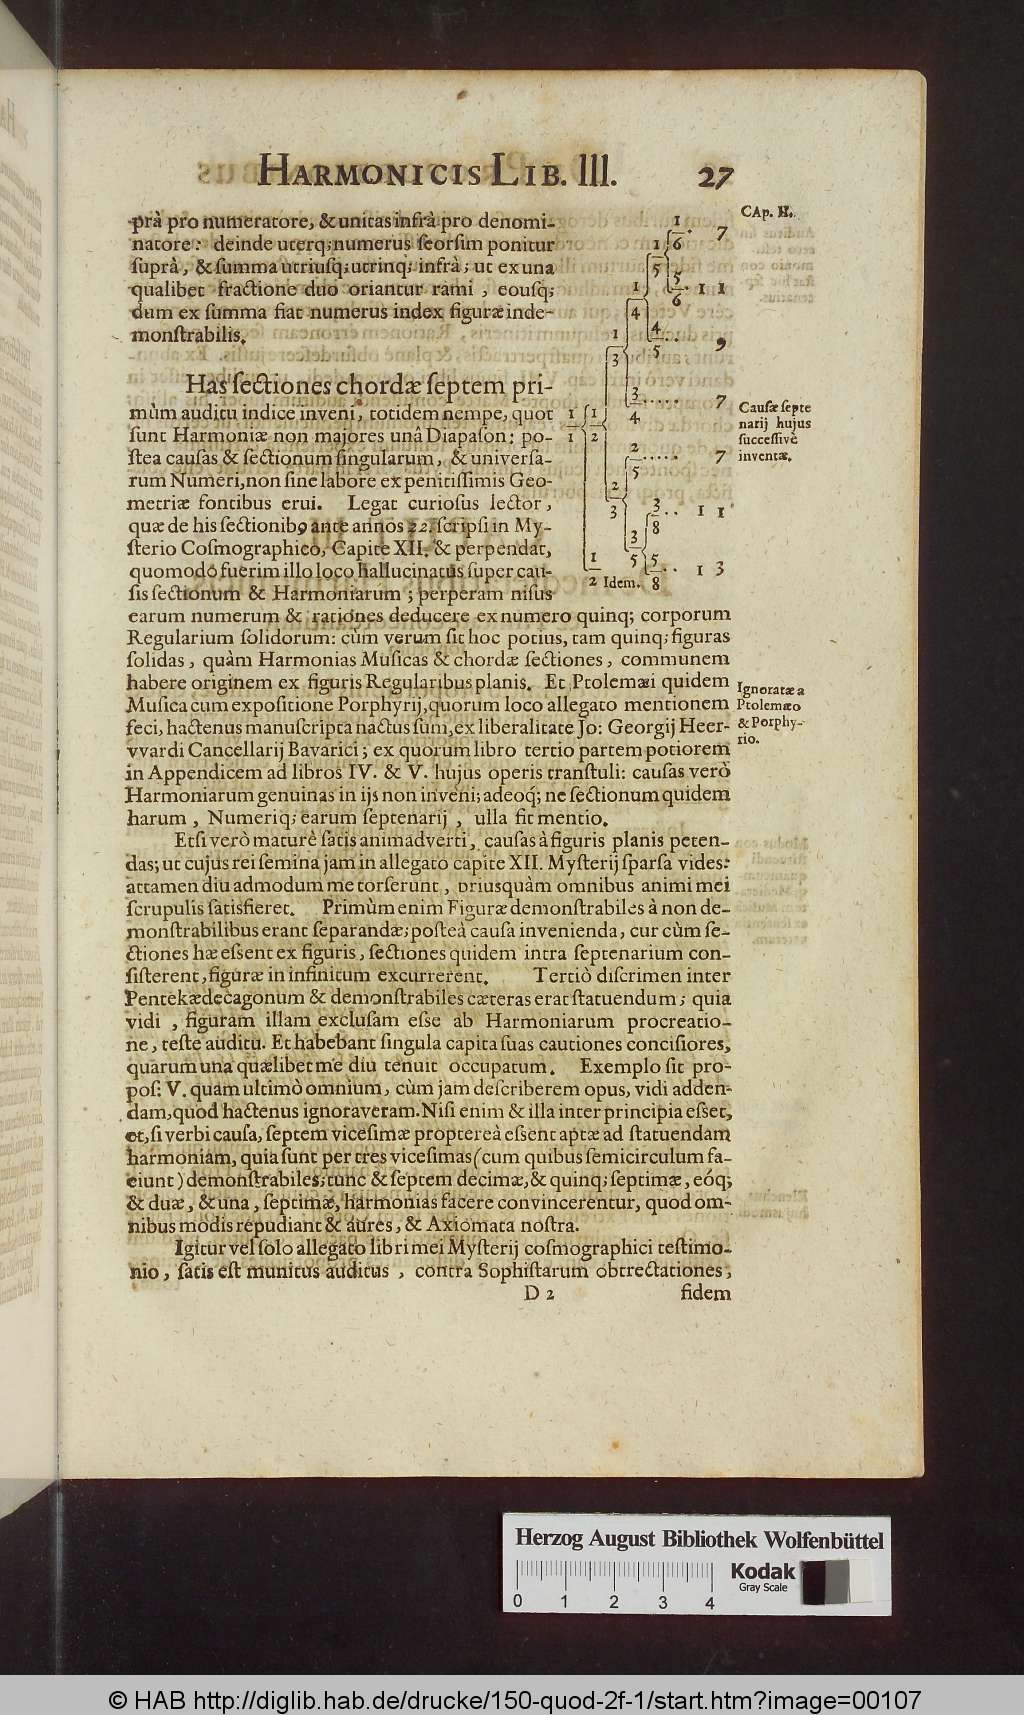 HARMONICIS LIB. III. 27
CAp. II.
prà pro numeratore, & unitas infrà pro denomi-
natore: deinde uterq; numerus ſeorſim ponitur
ſuprà, & ſumma utriuſq; utrinq; infrà; ut ex una
qualibet fractione duo oriantur rami, eouſq;
dum ex ſumma fiat numerus index figuræ inde-
monſtrabilis.
Has ſectiones chordæ ſeptem pri-
mùm auditu indice inveni, totidem nempe, quot
ſunt Harmoniæ non majores unâ Diapaſon: po-
ſtea cauſas & ſectionum ſingularum, & univerſa-
rum Numeri, non ſine labore ex penitiſſimis Geo-
metriæ fontibus erui. Legat curioſus lector,
quæ de his ſectionib9 ante annos 22. ſcripſi in My-
ſterio Coſmographico, Capite XII. & perpendat,
quomodo fuerim illo loco hallucinatus ſuper cau-
ſis ſectionum & Harmoniarum; perperam niſus
1/1 { 1/2 { 1/3 { 1/4 { 1/5 { 1/6 . 7
5/6 . 1 1
4/5 . . 9
3/4 . . . . . 7
2/3 { 2/5 . . . . . 7
3/5 { 3/8 . . 1 1
5/8 . . 1 3
1/2 Idem.
Cauſæ ſepte
narij hujus
ſucceſſivè
inventæ.
earum numerum & rationes deducere ex numero quinq; corporum
Regularium ſolidorum: cùm verum ſit hoc potius, tam quinq; figuras
ſolidas, quàm Harmonias Muſicas & chordæ ſectiones, communem
habere originem ex figuris Regularibus planis. Et Ptolemæi quidem
Muſica cum expoſitione Porphyrij, quorum loco allegato mentionem
feci, hactenus manuſcripta nactus ſum, ex liberalitate Jo: Georgij Heer-
vvardi Cancellarij Bavarici; ex quorum libro tertio partem potiorem
in Appendicem ad libros IV. & V. hujus operis tranſtuli: cauſas verò
Harmoniarum genuinas in ijs non inveni; adeoq; ne ſectionum quidem
harum, Numeriq; earum ſeptenarij, ulla fit mentio.
Ignoratæ a
Ptolemæo
& Porphy-
rio.
Etſi verò maturè ſatis animadverti, cauſas à figuris planis peten-
das; ut cujus rei ſemina jam in allegato capite XII. Myſterij ſparſa vides:
attamen diu admodum me torſerunt, priusquàm omnibus animi mei
ſcrupulis ſatisfieret. Primùm enim Figuræ demonſtrabiles à non de-
monſtrabilibus erant ſeparandæ; poſteà cauſa invenienda, cur cùm ſe-
ctiones hæ eſſent ex figuris, ſectiones quidem intra ſeptenarium con-
ſiſterent, figuræ in infinitum excurrerent. Tertiò diſcrimen inter
Pentekædecagonum & demonſtrabiles cæteras erat ſtatuendum; quia
vidi, figuram illam excluſam eſſe ab Harmoniarum procreatio-
ne, teſte auditu. Et habebant ſingula capita ſuas cautiones conciſiores,
quarum una quælibet me diu tenuit occupatum. Exemplo ſit pro-
poſ: V. quam ultimò omnium, cùm jam deſcriberem opus, vidi adden-
dam, quod hactenus ignoraveram. Niſi enim & illa inter principia eſſet,
et, ſi verbi cauſa, ſeptem viceſimæ proptereà eſſent aptæ ad ſtatuendam
harmoniam, quia ſunt per tres viceſimas (cum quibus ſemicirculum fa-
ciunt) demonſtrabiles; tunc & ſeptem decimæ, & quinq; ſeptimæ, eóq;
& duæ, & una, ſeptimæ, harmonias facere convincerentur, quod om-
nibus modis repudiant & aures, & Axiomata noſtra.
Igitur vel ſolo allegato libri mei Myſterij coſmographici teſtimo-
nio, ſatis eſt munitus auditus, contra Sophiſtarum obtrectationes;
D 2 fidem
Herzog August Bibliothek Wolfenbüttel
Kodak
Gray Scale
0 1 2 3 4
© HAB http://diglib.hab.de/drucke/150-quod-2f-1/start.htm?image=00107